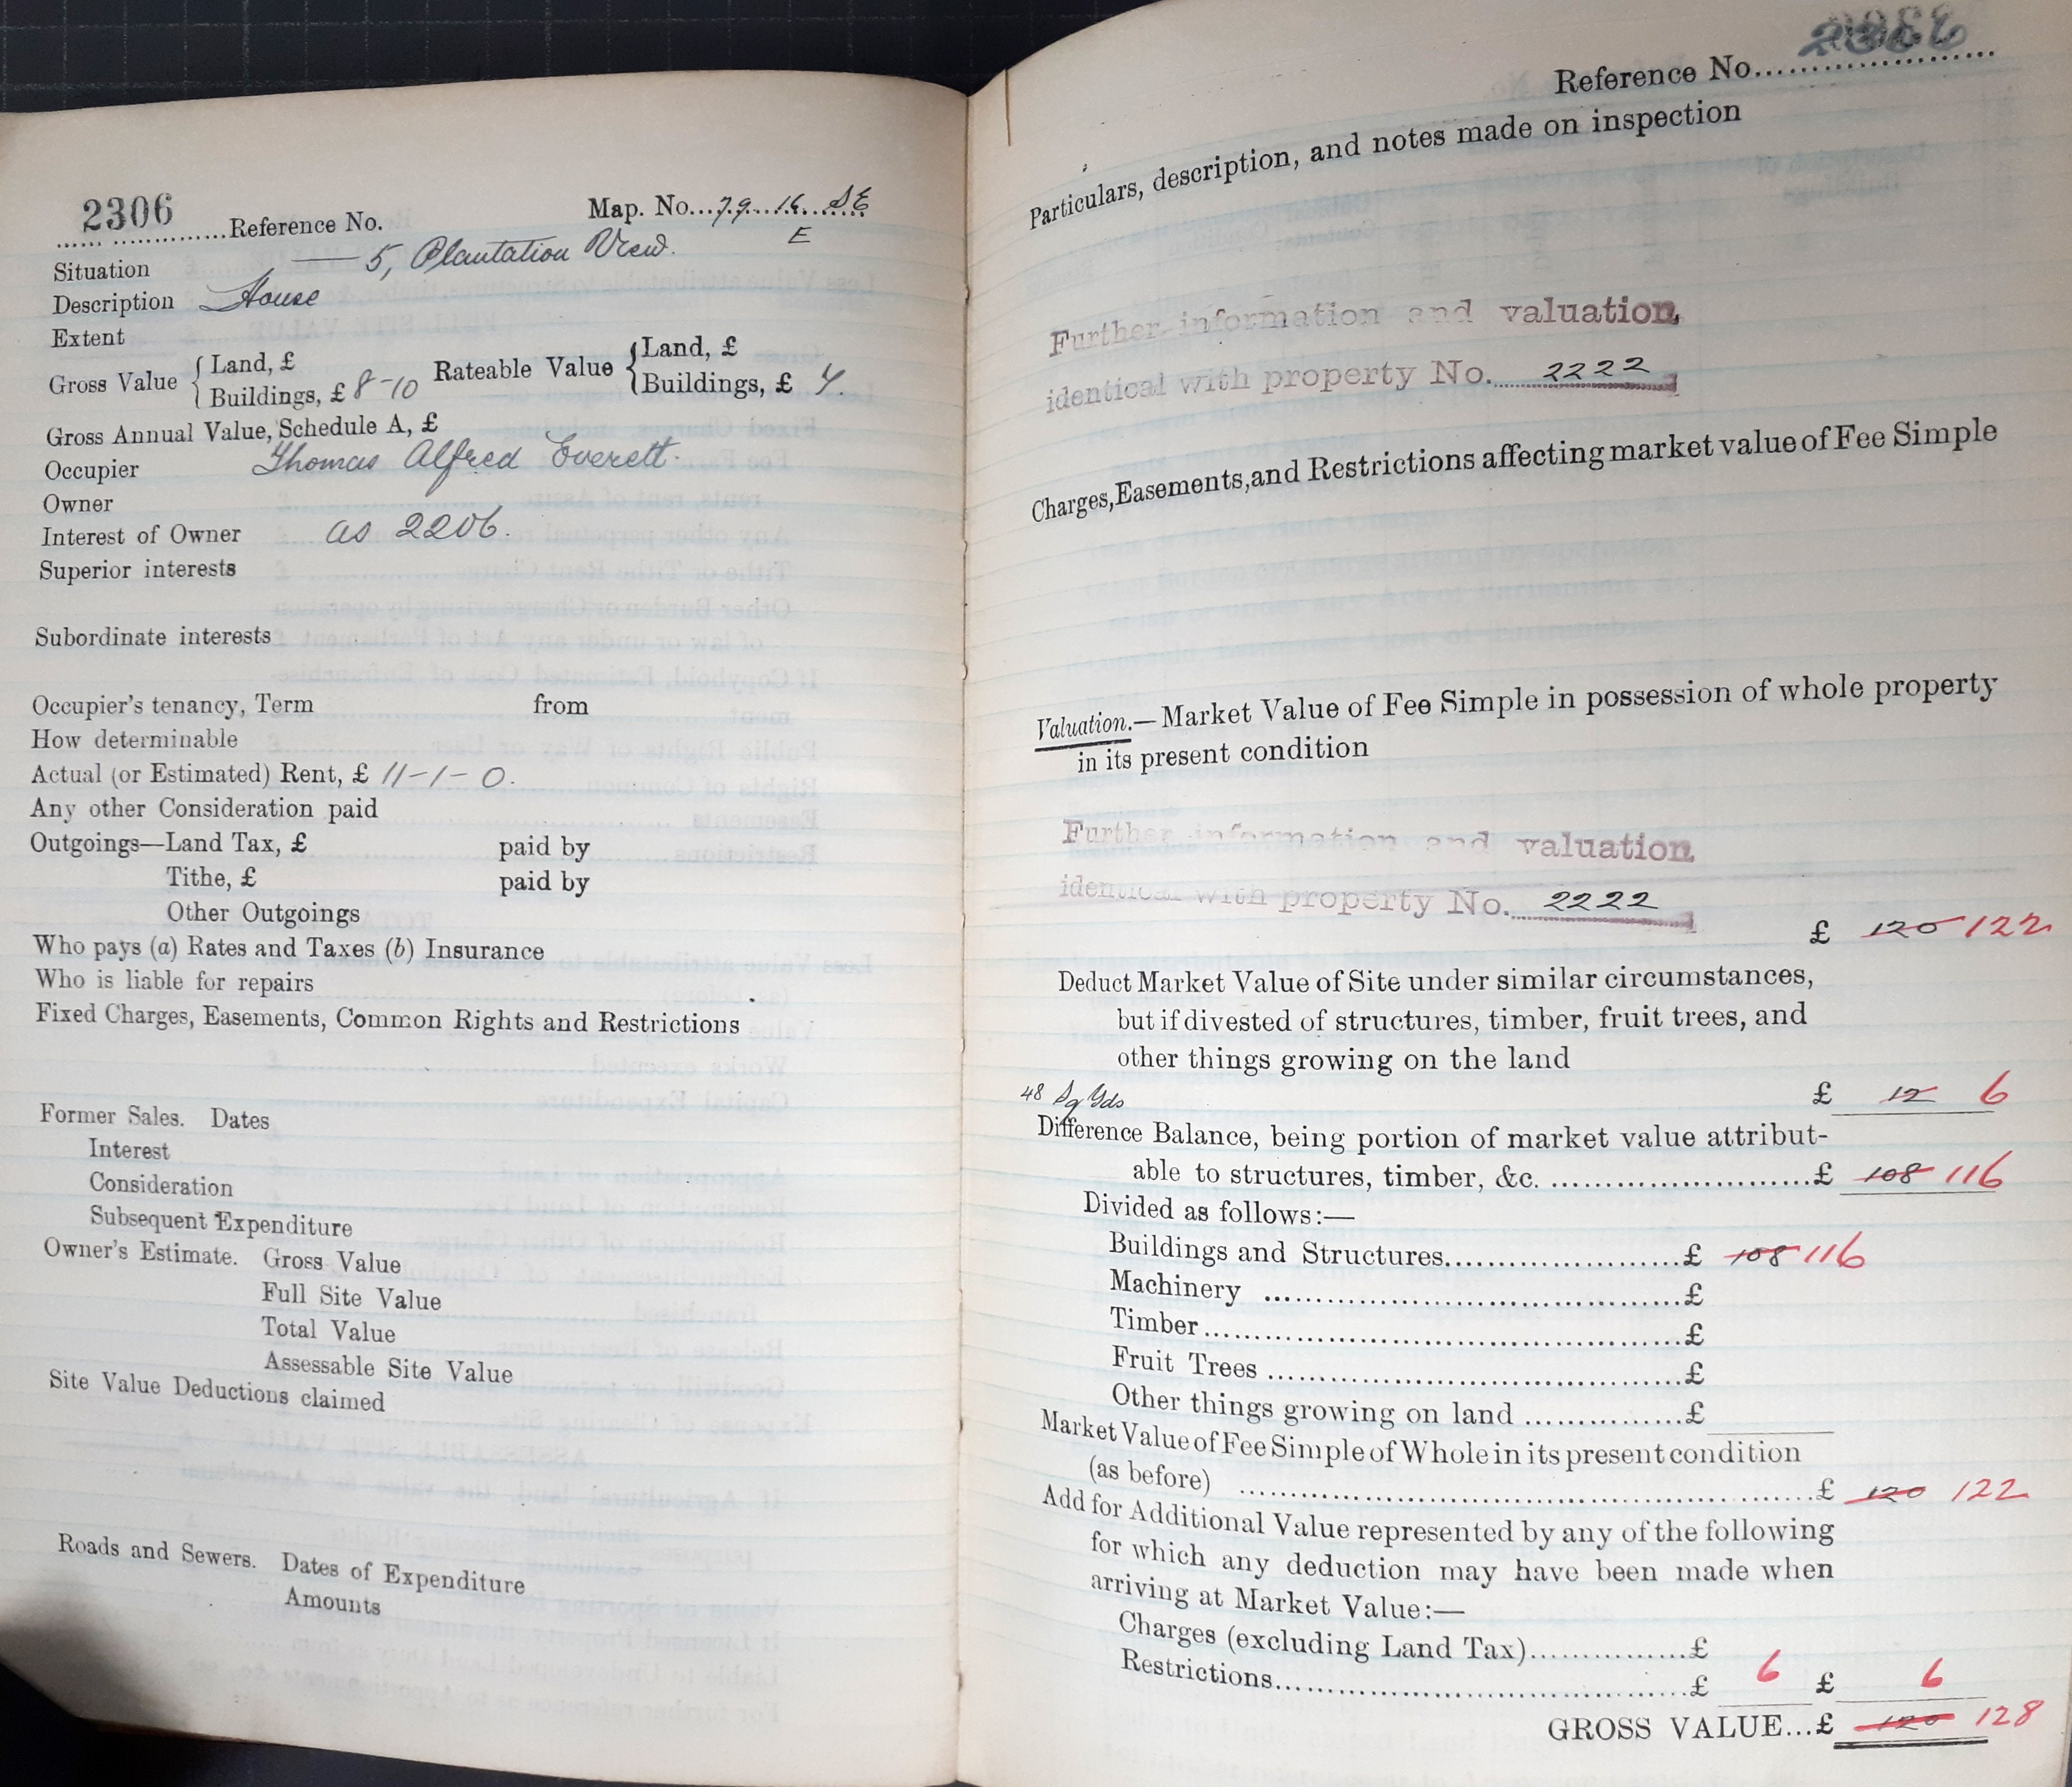 2306
Reference No. Map. No. 79. 16. SE
E
Situation — 5, Plantation View.
Description House
Extent
Gross Value { Land, £ Rateable Value { Land, £
Buildings, £ 8-10 Buildings, £
Gross Annual Value, Schedule A, £
Occupier Thomas Alfred Everett.
Owner
Interest of Owner as 2206.
Superior interests
Subordinate interests
Occupier's tenancy, Term from
How determinable
Actual (or Estimated) Rent, £ 11-1-0.
Any other Consideration paid
Outgoings—Land Tax, £ paid by
Tithe, £ paid by
Other Outgoings
Who pays (a) Rates and Taxes (b) Insurance
Who is liable for repairs
Fixed Charges, Easements, Common Rights and Restrictions
Former Sales. Dates
Interest
Consideration
Subsequent Expenditure
Owner's Estimate. Gross Value
Full Site Value
Total Value
Assessable Site Value
Site Value Deductions claimed
Roads and Sewers. Dates of Expenditure
Amounts
Reference No.
Particulars, description, and notes made on inspection
Further information and valuation
identical with property No. 2222
Charges, Easements, and Restrictions affecting market value of Fee Simple
Valuation.—Market Value of Fee Simple in possession of whole property
in its present condition
Further information and valuation
identical with property No. 2222
£ 120 122
Deduct Market Value of Site under similar circumstances,
but if divested of structures, timber, fruit trees, and
other things growing on the land
48 Sq Yds £ 12 6
Difference Balance, being portion of market value attribut-
able to structures, timber, &c. £ 108 116
Divided as follows:—
Buildings and Structures £ 108 116
Machinery £
Timber £
Fruit Trees £
Other things growing on land £
Market Value of Fee Simple of Whole in its present condition
(as before) £ 120 122
Add for Additional Value represented by any of the following
for which any deduction may have been made when
arriving at Market Value:—
Charges (excluding Land Tax) £
Restrictions £ 6 £ 6
GROSS VALUE...£ 120 128